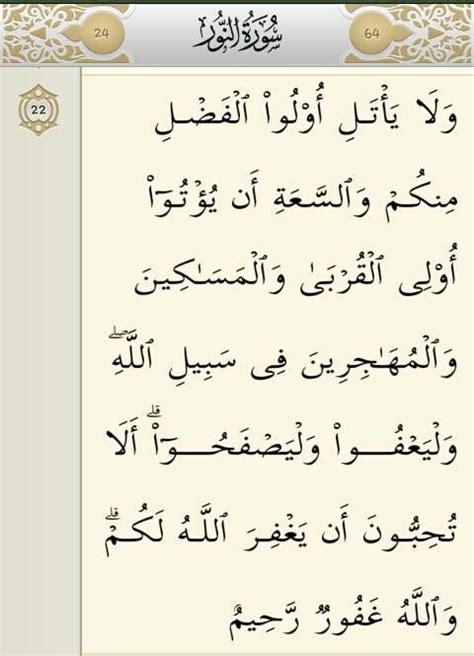 24 سُورَةُ النُّور 64
22
وَلَا يَأْتَلِ أُو۟لُوا۟ ٱلْفَضْلِ
مِنكُمْ وَٱلسَّعَةِ أَن يُؤْتُوٓا۟
أُو۟لِى ٱلْقُرْبَىٰ وَٱلْمَسَـٰكِينَ
وَٱلْمُهَـٰجِرِينَ فِى سَبِيلِ ٱللَّهِ ۖ
وَلْيَعْفُوا۟ وَلْيَصْفَحُوٓا۟ ۗ أَلَا
تُحِبُّونَ أَن يَغْفِرَ ٱللَّهُ لَكُمْ ۗ
وَٱللَّهُ غَفُورٌ رَّحِيمٌ